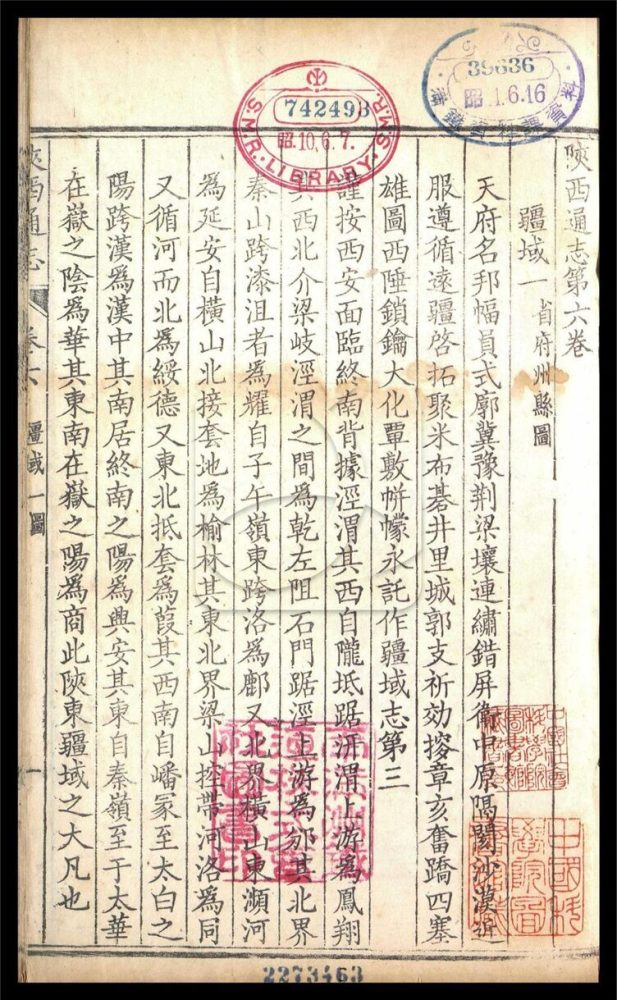 陝西通志第六卷
疆域一 省府州縣圖
天府名邦幅員式廓冀豫荆梁壤連繡錯屏衛中原隔閡沙漠近
服遵循遠疆啓拓聚米布碁井里城郭支祈効搜章亥奮蹻四塞
雄圖西陲鎖鑰大化覃敷帡幪永託作疆域志第三
謹按西安面臨終南背據涇渭其西自隴坻踞汧渭上游爲鳳翔
其西北介梁岐涇渭之間爲乾左阻石門踞涇上游爲邠其北界
秦山跨漆沮者爲耀自子午嶺東跨洛爲鄜又北界橫山東瀕河
爲延安自橫山北接套地爲榆林其東北界梁山控帶河洛爲同
又循河而北爲綏德又東北抵套爲葭其西南自嶓冢至太白之
陽跨漢爲漢中其南居終南之陽爲興安其東自秦嶺至于太華
在嶽之陰爲華其東南在嶽之陽爲商此陝東疆域之大凡也
陝西通志
卷六
疆域一圖
一
S.M.R. LIBRARY S.M.R.
742493
昭10.6.7.
39636
昭 1.6.16
2273463